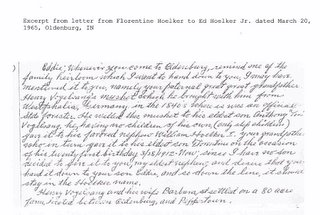 Excerpt from letter from Florentine Hoelker to Ed Hoelker Jr. dated March 20,
1965, Oldenburg, IN
Eddie; whenever you come to Oldenburg, remind one of the
family heirlooms which I want to hand down to you, I may have
mentioned it to you, namely your paternal great great grandfather
Henry Vogelsang's musket which he brought with him from
Westphalia, Germany, in the 1840's when as was an official
State forester. He willed this musket to his eldest son Anthony
Vogelsang, he having no children of his own (only step children)
gave it to his favored nephew William Hoelker, your grandfather
who in turn gave it to his eldest son Florentine on the occasion
of his twenty first birthday 3/25/1912. Now, since I have no son
decided to give it to you, my eldest nephew, and desire that you
hand it down to your son Eddie, and so down the line, it always
stay in the Hoelker name.
Henry Vogelsang and his wife Barbara settled on a 80 acre
farm located between Oldenburg and Peppertown.